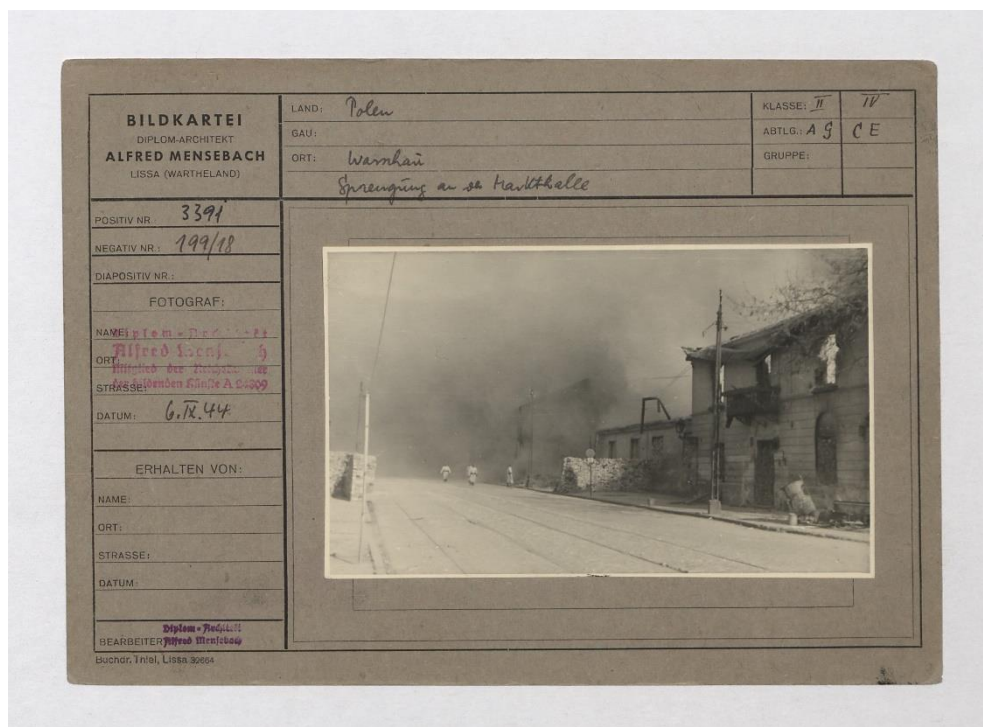 BILDKARTEI
DIPLOM-ARCHITEKT
ALFRED MENSEBACH
LISSA (WARTHELAND)
LAND: Polen
GAU:
ORT: Warschau
Sprengung an der Markthalle
KLASSE: II IV
ABTLG.: A G C E
GRUPPE:
POSITIV NR. 3391
NEGATIV NR.: 199/18
DIAPOSITIV NR.:
FOTOGRAF:
NAME:
Diplom-
Alfred
ORT:
Mitglied der
STRASSE:
der bildenden Künste A
DATUM: 6.IX.44
ERHALTEN VON:
NAME:
ORT:
STRASSE:
DATUM:
Diplom-
BEARBEITER Alfred Mensebach
Buchdr. Thiel, Lissa 30664